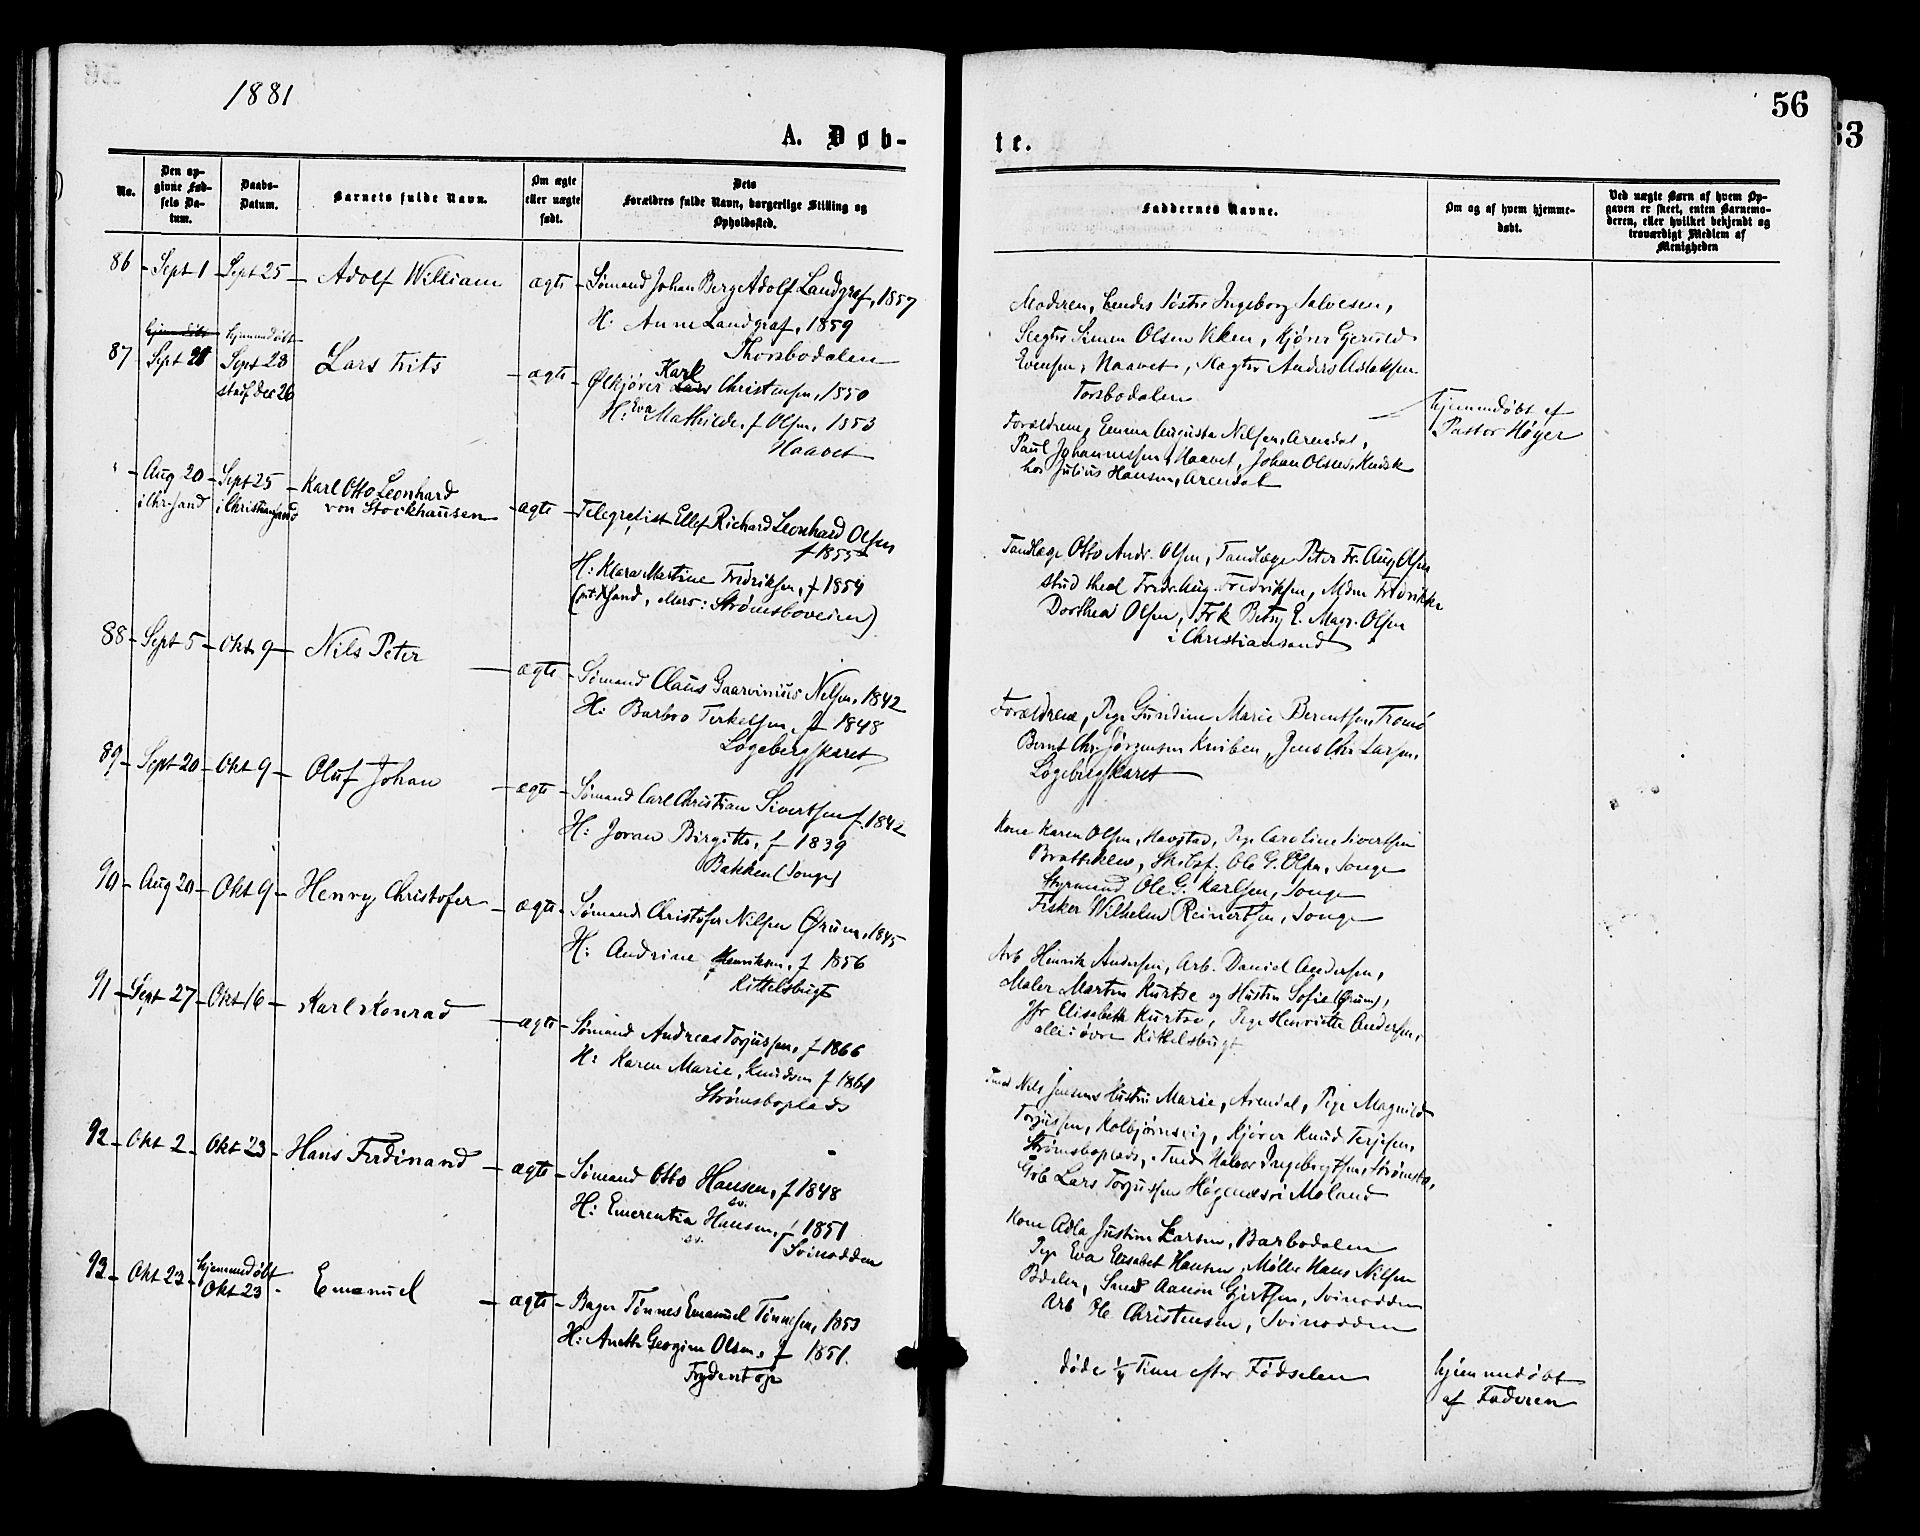 1881
56
63
A. Døb-
te.
No.
Den op-
givne Fød-
sels Da-
tum.
Daabs-
Datum.
Barnets fulde Navn.
Om ægte
eller uægte
født.
Dets
Forældres fulde Navn, borgerlige Stilling og
Opholdssted.
Faddernes Navne.
Om og af hvem hjemme-
døbt.
Ved uægte Børn af hvem Op-
gaven er skeet, enten Barnemo-
deren, eller hvilket bekjendt og
troværdigt Medlem af
Menigheden
86 Sept 1 Sept 25 Adolf William ægte Sømand Johan Berg Adolf Landgraf, 1857
H: Anne Landgraf, 1859
Thorsbodalen
Moderen, hendes Søster Ingeborg Salvesen,
Simen Olsen Viken, Kjører Gjeruld
Evensen, Haavet, Slagter Anders Aslaksen
Torsbodalen
87 Sept 21 hjemmedøbt
Sept 23
stadf. Dec 26
Lars Frits ægte Ølkjører Karl Christensen, 1850
H: Eva Mathilde, f Olsen, 1853
Haavet
Forældrene, Emma Augusta Nilsen, Arendal,
Paul Johannessen, Haavet, Johan Olsen,
hos Julius Hansen, Arendal
hjemmedøbt af
Pastor Høyer
" Aug 20
i Chr.sand
Sept 25
i Christiansand
Karl Otto Leonhard
von Stockhausen
ægte Telegrafist Ellef Richard Leonhard Olsen
f 1855
H: Klara Martine Fredriksen, f 1854
(pt. Xsand, Strømsboveien)
Tandlæge Otto Andr. Olsen, Tandlæge Peter Fr. Aug Olsen
stud Fredr. Aug. Fredriksen, Mdm Fredrikke
Dorthea Olsen, Frk Betsy E. Marg. Olsen
i Christiansand
88 Sept 5 Okt 9 Nils Peter ægte Sømand Claus Gaarvinius Nilsen, 1842
H: Barbro Terkelsen, f 1848
Løgebergskaret
Forældrene, Pige Gundine Marie Berentsen, Tromø
Bernt Chr. Jørgensen Kniben, Jens Chr Larsen,
Løgebergskaret
89 Sept 20 Okt 9 Oluf Johan ægte Sømand Carl Christian Sivertsen f. 1842
H: Joran Birgitte, f 1839
Bakken (Songe)
Kone Karen Olsen, Havstad, Pige Caroline Sivertsen
Brattekleiv, Skibsf. Ole G. Olsen, Songe
Styrmand Ole G. Karlsen, Songe
Fisker Wilhelm Reinertsen, Songe
90 Aug 20 Okt 9 Henry Christofer ægte Sømand Christofer Nilsen Ørum, 1845
H: Andrine Henriksen, f 1856
Kittelsbugt
Arb Henrik Andersen, Arb. Daniel Andersen,
Maler Martin Kurtze og Hustru Sofie (Ørum),
Jfr Elisabeth Kurtze, Pige Henriette Andersen,
alle i øvre Kittelsbugt
91 Sept 27 Okt 16 Karl Konrad ægte Sømand Andreas Torjussen, f 1866
H: Karen Marie, Knudsen f 1861
Strømsboplads
Nils Jensens Hustru Marie, Arendal, Pige Magnild
Torjussen, Kolbjørnsvig, Kjører Knud Terjesen,
Strømsboplads, Halvor Ingebrgtsen, Strømsbo,
Grb Lars Torjussen Høgenæs i Moland
92 Okt 2 Okt 23 Hans Ferdinand ægte Sømand Otto Hansen, f 1848
H: Emerentia Hansen, f 1851
Svinodden
Kone Adla Justine Larsen, Barbodalen
Pige Eva Elisabet Hansen, Møller Hans Nilsen
Bdalen, Smed Aanon Gjertsen, Svinodden
Arb Ole Christensen, Svinodden
93 Okt 23 hjemmedøbt
Okt 23
Emanuel ægte Bager Tønnes Emanuel Tønnesen, 1853
H: Anette Georgine Olsen, f 1851.
Frydentop
døde 1/4 Time efter Fødselen
hjemmedøbt
af Faderen